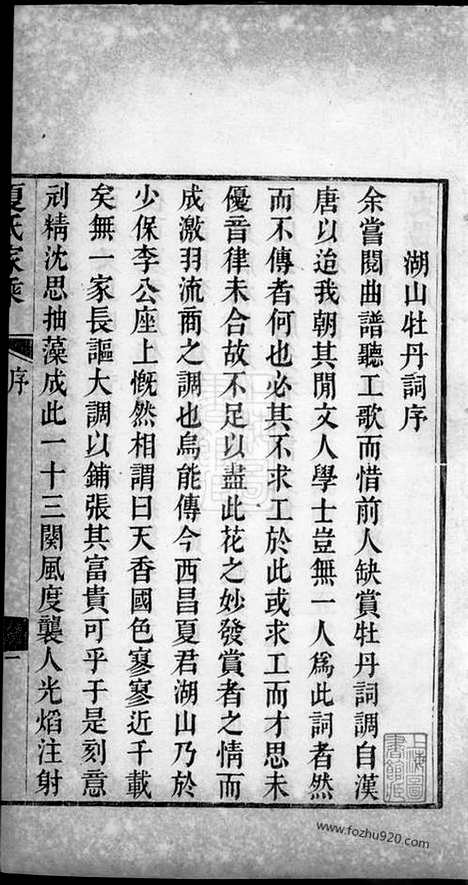 湖山牡丹詞序
余嘗閱曲譜聽工歌而惜前人缺賞牡丹詞調自漢
唐以迨我朝其間文人學士豈無一人爲此詞者然
而不傳者何也必其不求工於此或求工而才思未
優音律未合故不足以盡此花之妙發賞者之情而
成激羽流商之調也烏能傳今西昌夏君湖山乃於
少保李公座上慨然相謂曰天香國色寥寥近千載
矣無一家長謳大調以鋪張其富貴可乎于是刻意
刓精沈思抽藻成此一十三闋風度襲人光焰注射
夏氏家乘
序
一
上海圖書館藏
www.fozhu920.com